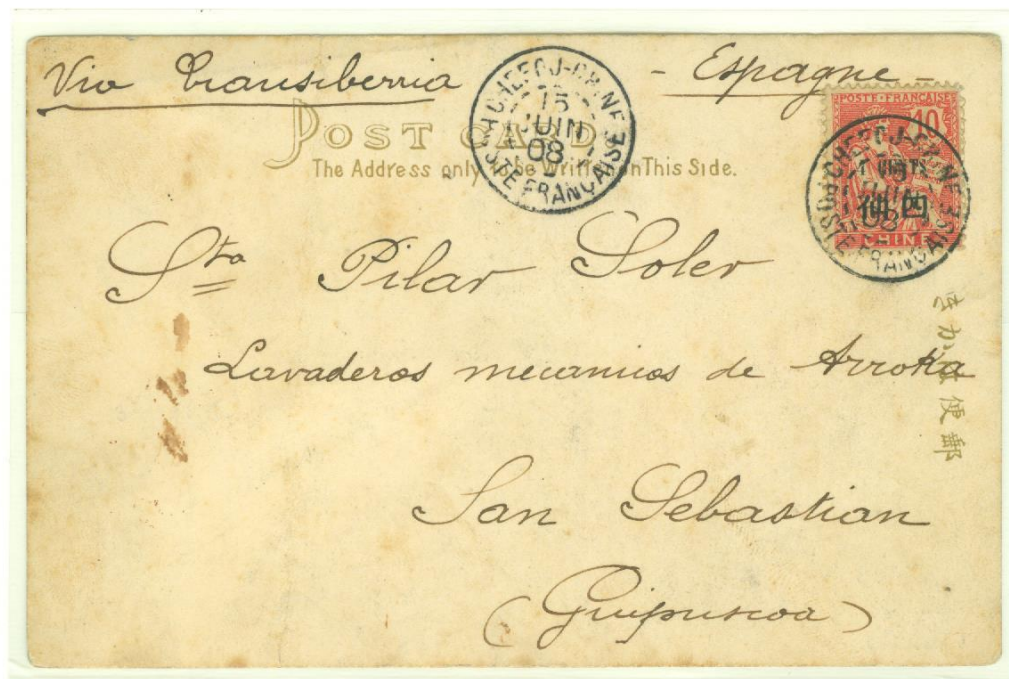 Via Transiberia - Espagne -
POST CARD
The Address only to be Written on This Side.
TCHEFOU-CHINE
15
JUIN
08
PSTE FRANÇAISE
POSTE FRANÇAISE
10
4 CENTS
仙四
CHINE
TCHEFOU-CHINE
JUIN
08
PSTE FRANÇAISE
Sta Pilar Soler
Lavaderos mecanicos de Arroka
郵便はかき
San Sebastian
(Guipuscoa)